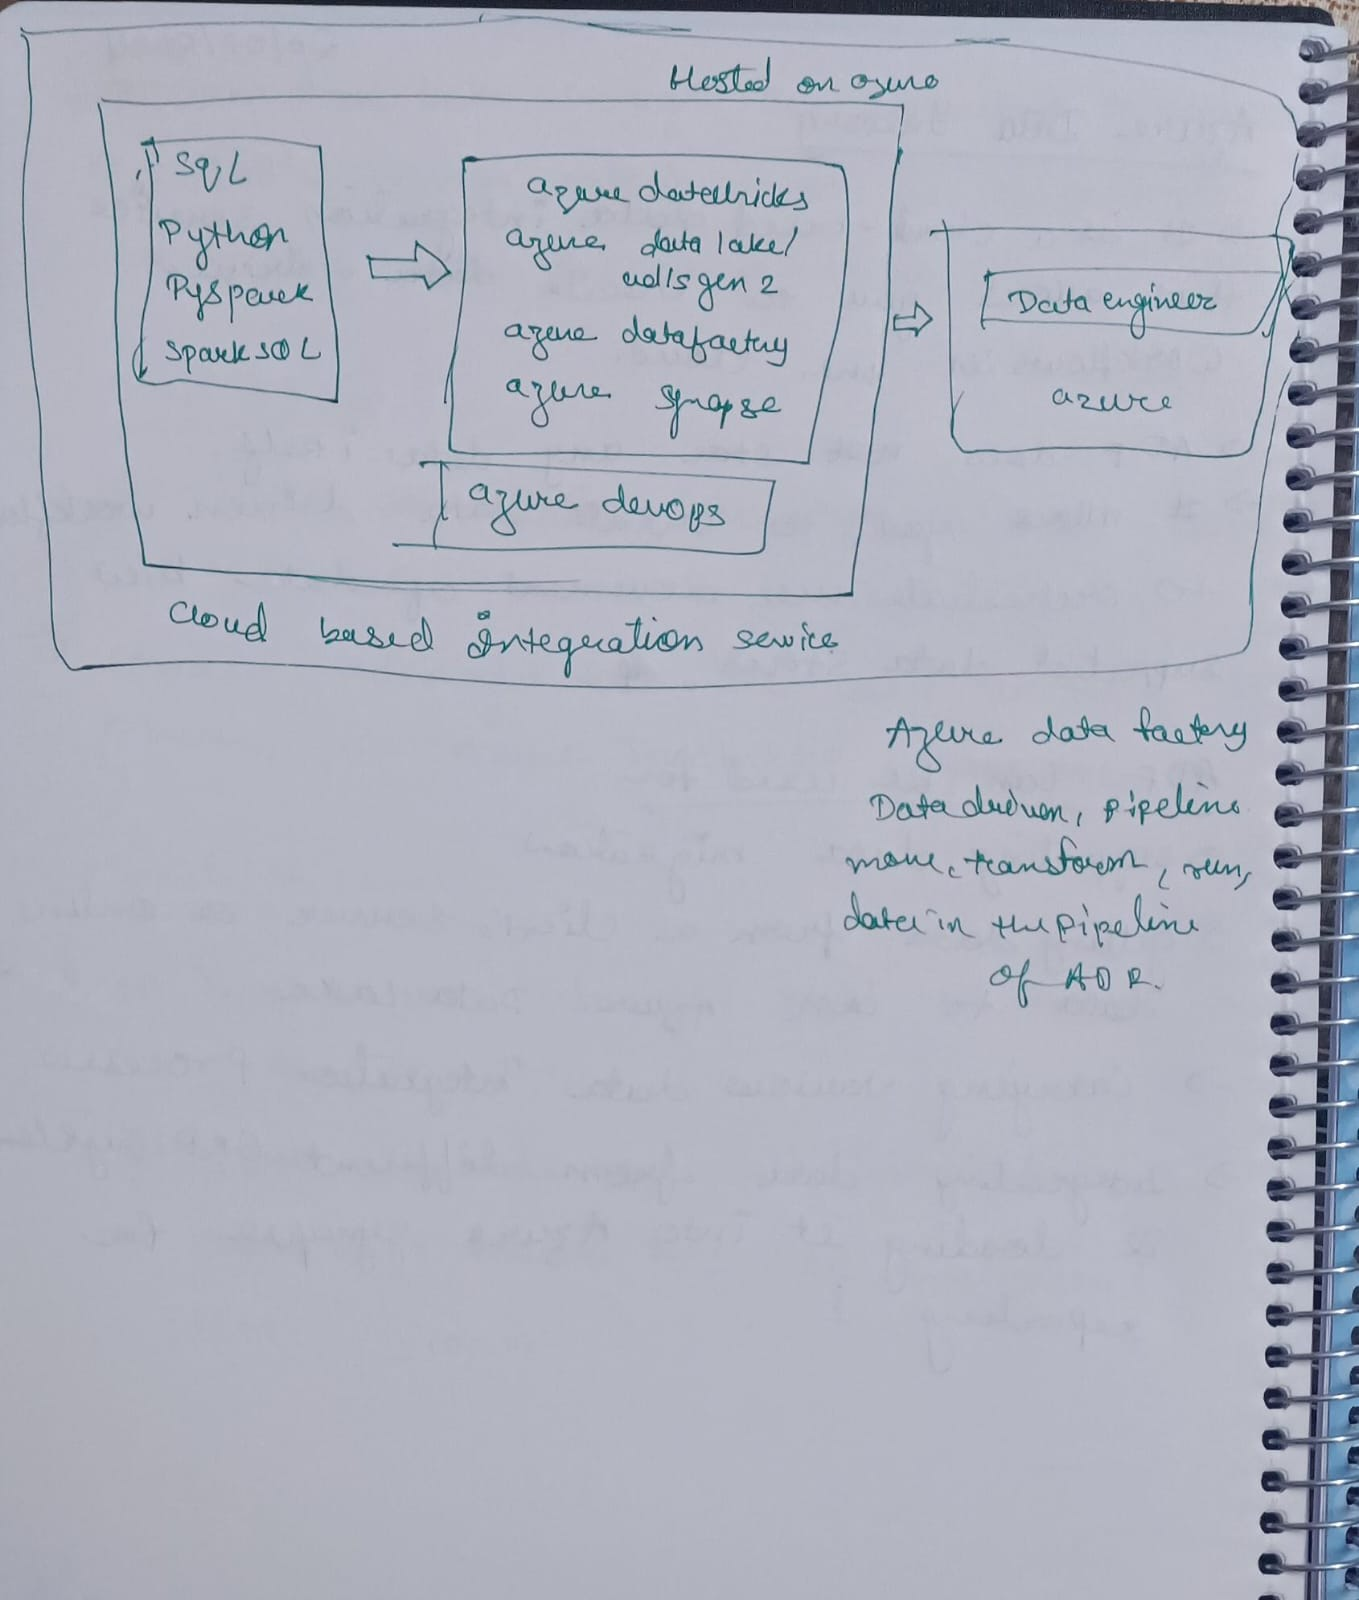 Hosted on azure
SQL
Python
Pyspark
Spark SQL
azure databricks
azure data lake/
adlsgen 2
azure datafactory
azure synapse
azure devops
Data engineer
azure
Cloud based Integration service
Azure data factory
Data driven, pipeline
move, transform, run,
data in the pipeline
of ADF.